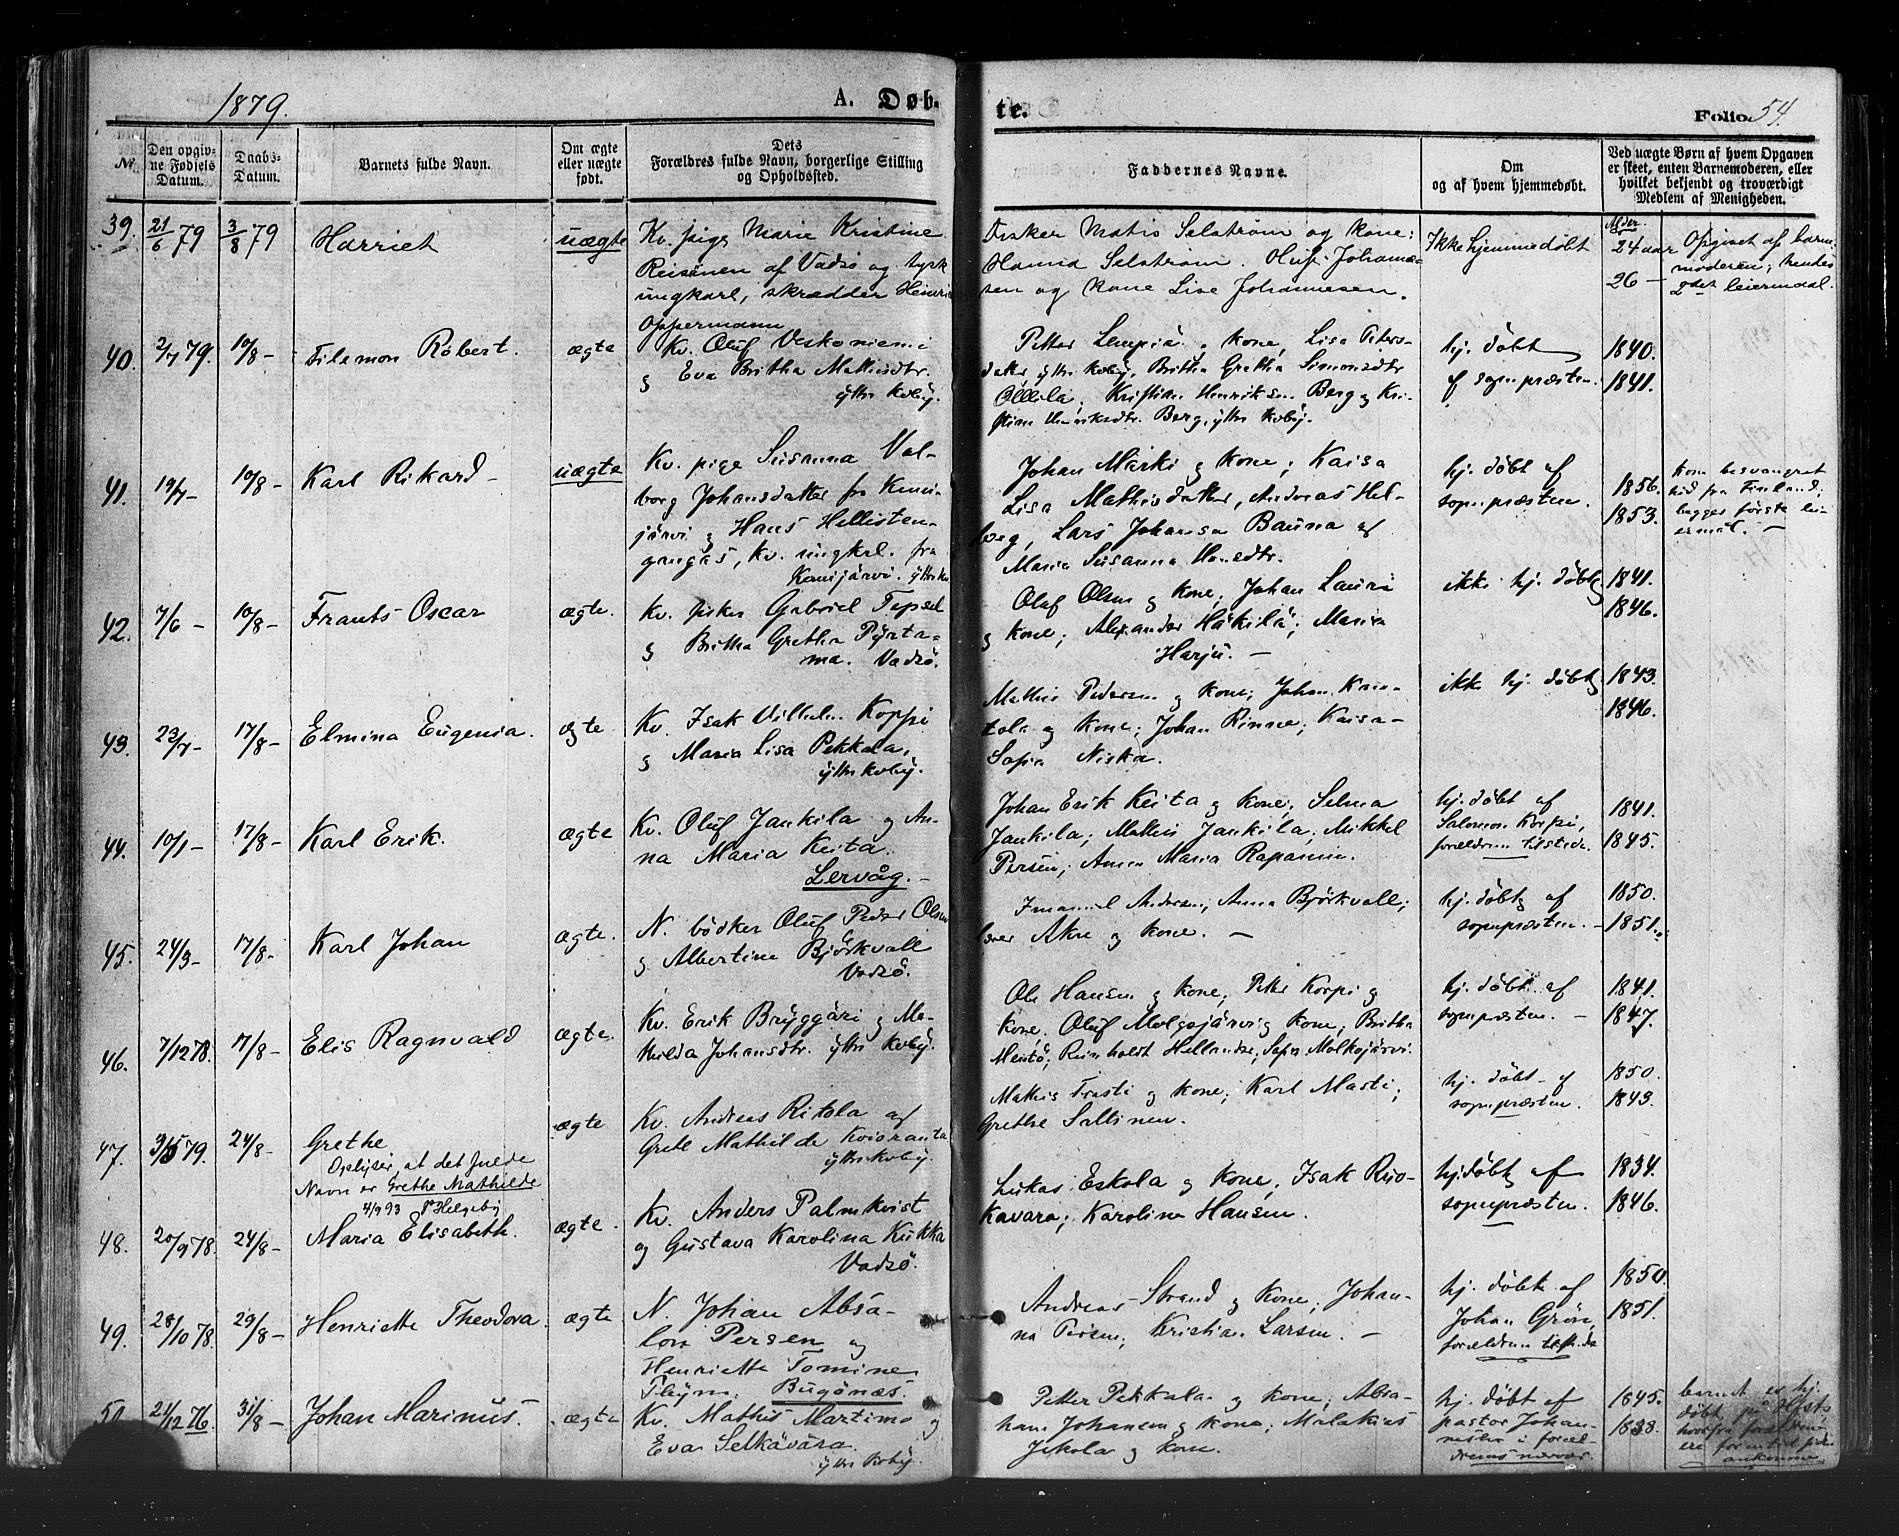 1879.
A. Døb-
te.
Folio 54.
No.
Den opgiv-
ne Fødsels
Datum.
Daabs-
Datum.
Barnets fulde Navn.
Om ægte
eller uægte
født.
Dets
Forældres fulde Navn, borgerlige Stilling
og Opholdssted.
Faddernes Navne.
Om
og af hvem hjemmedøbt.
Ved uægte Børn af hvem Opgaven
er skeet, enten Barnemoderen, eller
hvilket bekjendt og troværdigt
Medlem af Menigheden.
39. 21/6 79 3/8 79 Harriet uægte
Kv. pige Marie Kristine
Reisänen af Vadsø og tysk
ungkarl, skrædder Heinric
Oppermann
Fisker Matis Selstrøm og kone;
Hanna Selstrøm. Oluf Johanne-
sen og kone Lise Johannesen.
Ikke hjemmedøbt
Alder
24 aar
26 —
Opgivet af barne-
moderen; hendes
2det leiermaal.
40. 2/7 79. 10/8 - Filemon Robert. ægte
Kv. Oluf Veskoniemi
g Eva Britha Mathisdtr.
yttre Kvby.
Petter Lempiä g kone, Lisa Peters-
datter yttre kvby, Britha Gretha Simonsdtr
Ollila, Kristian Henriksen Berg g Kri-
stine Henriksdtr. Berg, yttre kvby.
hj. døbt
af sognepræsten.
1840.
1841.
41. 19/7 - 10/8 - Karl Rikard - uægte
Kv. pige Susanna Val-
borg Johansdatter fra Kemi-
järvi g Hans Hellisten-
gangas, Kv. ungkrl. fra
Kemijärvi. yttre kv
Johan Märki g kone; Kaisa
Lisa Mathisdatter, Andreas Hel-
berg, Lars Johansen Bauna af
Maria Susanna Hansdtr.
hj. døbt af
sognepræsten.
1856.
1853.
kom besvangret
hid fra Finland;
begges første lei-
ermål. —
42. 7/6 - 10/8 - Frants Oscar ægte.
Kv. fisker Gabriel Tepsel
g Britha Gretha Pyrta-
ma. Vadsö.
Olaf Olsen g kone; Johan Lauri
g kone; Alexander Häkilä; Maria
Harju. —
ikke hj. døbt
1841.
1846.
43. 23/7 - 17/8 - Elmina Eugenia. ægte.
Kv. Isak Vilhelm Koppi
g Maria Lisa Pekkala,
yttre kvby.
Mathis Pedersen g kone; Johan Kau-
tola g kone; Johan Rinne; Kaisa-
Sofia Niska.
ikke hj. døbt
1843.
1846.
44. 10/1 - 17/8 - Karl Erik. ægte
Kv. Oluf Jankila g An-
na Maria Keita.
Lervåg. -
Johan Erik Keita g kone; Selma
Jankila; Mathis Jankila; Mikkel
Persen; Anna Maria Rapanin.
hj. døbt af
Salomon Korpi,
forældrene tilstede.
1841.
1845.
45. 24/3 - 17/8 - Karl Johan ægte.
N. bödker Oluf Peder Olsen
g Albertine Bjørkvall
Vadsö.
Imanuel Andersen; Anna Bjørkvall;
lærer Akre g kone. —
hj. døbt af
sognepræsten. -
1850.
1851.
46. 7/12 78. 17/8 - Elis Ragnvald ægte.
Kv. Erik Bryggäri g Ma-
thilda Johansdtr. yttre kvby.
Ole Hansen g kone; Peter Korpi g
kone. Oluf Molgojärvi g kone; Britha
Meutö; Reinholdt Hellander, Sofia Molkojärvi.
hj. døbt af
sognepræsten. -
1841.
1847.
47. 31/5 79. 24/8 - Grethe ægte
Oplyser, at det fulde
Navn er Grethe Mathilde
4/9 93 Helgeby
Kv. Andreas Ritola af
Grete Mathilde Kvioranta
yttre kvby.
Mathis Frasti g kone; Karl Marti;
Grethe Sallinen.
hj. døbt af
sognepræsten.
1850.
1843.
48. 20/9 78. 24/8 - Maria Elisabeth. ægte.
Kv. Anders Palmkvist
og Gustava Karolina Kukka
Vadsö.
Lukas Eskola g kone, Isak Ruo-
kavara; Karolina Hansen.
hj. døbt af
sognepræsten.
1834.
1846.
49. 28/10 78. 29/8 - Henriette Theodora. ægte
N. Johan Absa-
lon Persen og
Henriette Tomine
Fleym. Bugönæs.
Andreas Strand g kone; Johan-
na Persen; Kristian Larsen. —
hj. døbt af
Johan Grön,
forældrene tilstede
1850.
1851.
50. 21/12 76. 31/8 - Johan Marinus. ægte
Kv. Mathis Martimo g
Eva Selkävära.
yttre kvby.
Petter Pekkala g kone; Abra-
ham Johansen g kone; Malakias
Jskola g kone.
hj. døbt af
pastor Johan-
nesen i foræl-
drenes nærvær.
1845.
1838.
barnet er hj.
døbt på
hvorfra forældrene
ere
ankomne